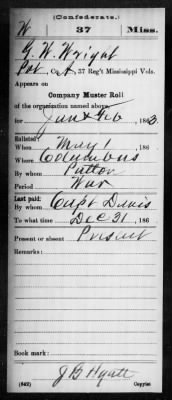 (Confederate.)
W 37 Miss.
G. W. Wright
Pvt, Co. A, 37 Reg't Mississippi Vols.
Appears on
Company Muster Roll
of the organization named above,
for Jan & Feb, 1863.
Enlisted:
When May 1, 186
Where Columbus
By whom Patton
Period War
Last paid:
By whom Capt Davis
To what time Dec 31, 186
Present or absent Present
Remarks:
Book mark:
J B Hyatt
(642) Copyist.